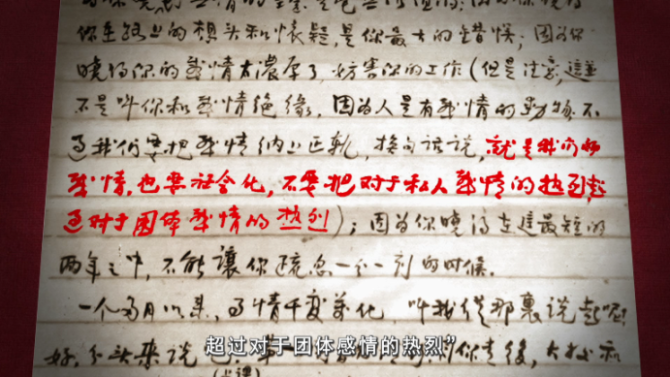 你在路上的想头和怀疑,是你最大的错误;因为你
晓得你的感情太濃厚了,妨害你的工作(但是注意,這並
不是叫你和感情绝缘,因为人是有感情的动物,不
过我们要把感情纳上正轨,换句话说,就是我们的
感情,也要社会化,不要把对于私人感情的热烈超
过对于团体感情的热烈);因为你晓得在这最短的
两年之中,不能讓你疏忽一分一刻的时候。
一个多月以来,事情千变萬化,叫我从那裏说起呢
好,分头来说 你走後,大批和
超过对于团体感情的热烈”